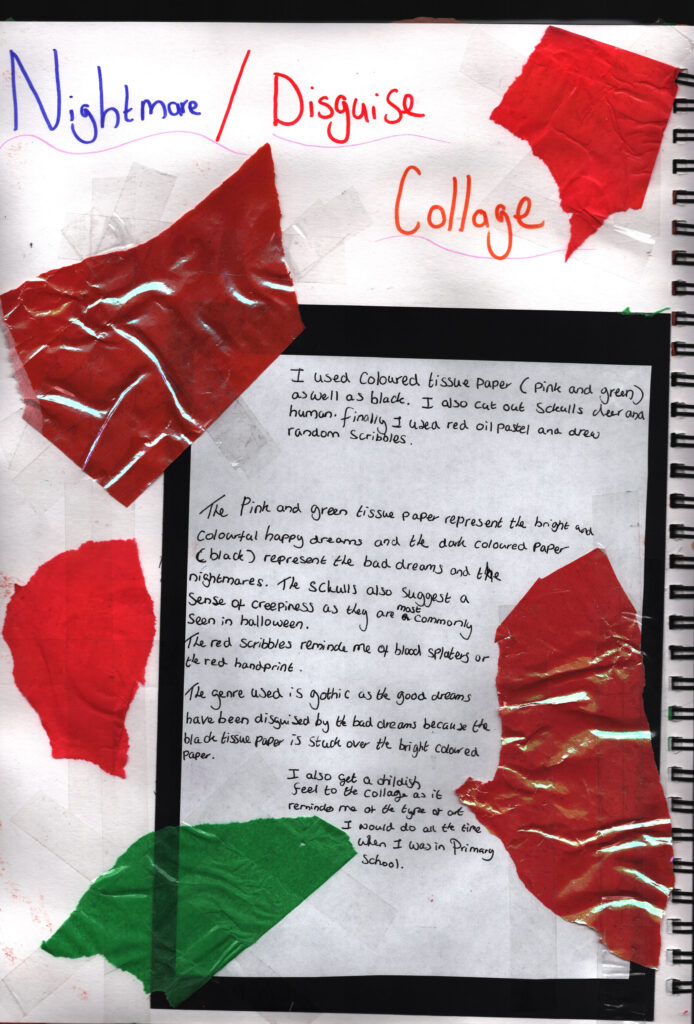 Nightmare / Disguise
Collage
I used coloured tissue paper (pink and green)
as well as black. I also cut out Sckulls deer and
human. finally I used red oil pastel and drew
random scribbles.
The Pink and green tissue paper represent the bright and
colourful happy dreams and the dark coloured paper
(black) represent the bad dreams and the
nightmares. The sckulls also suggest a
sense of creepiness as they are most commonly
seen in halloween.
The red scribbles remind me of blood splaters or
the red handprint.
The genre used is gothic as the good dreams
have been disguised by the bad dreams because the
black tissue paper is stuck over the bright coloured
paper.
I also get a childish
feel to the collage as it
reminds me of the type of art
I would do all the time
when I was in Primary
School.